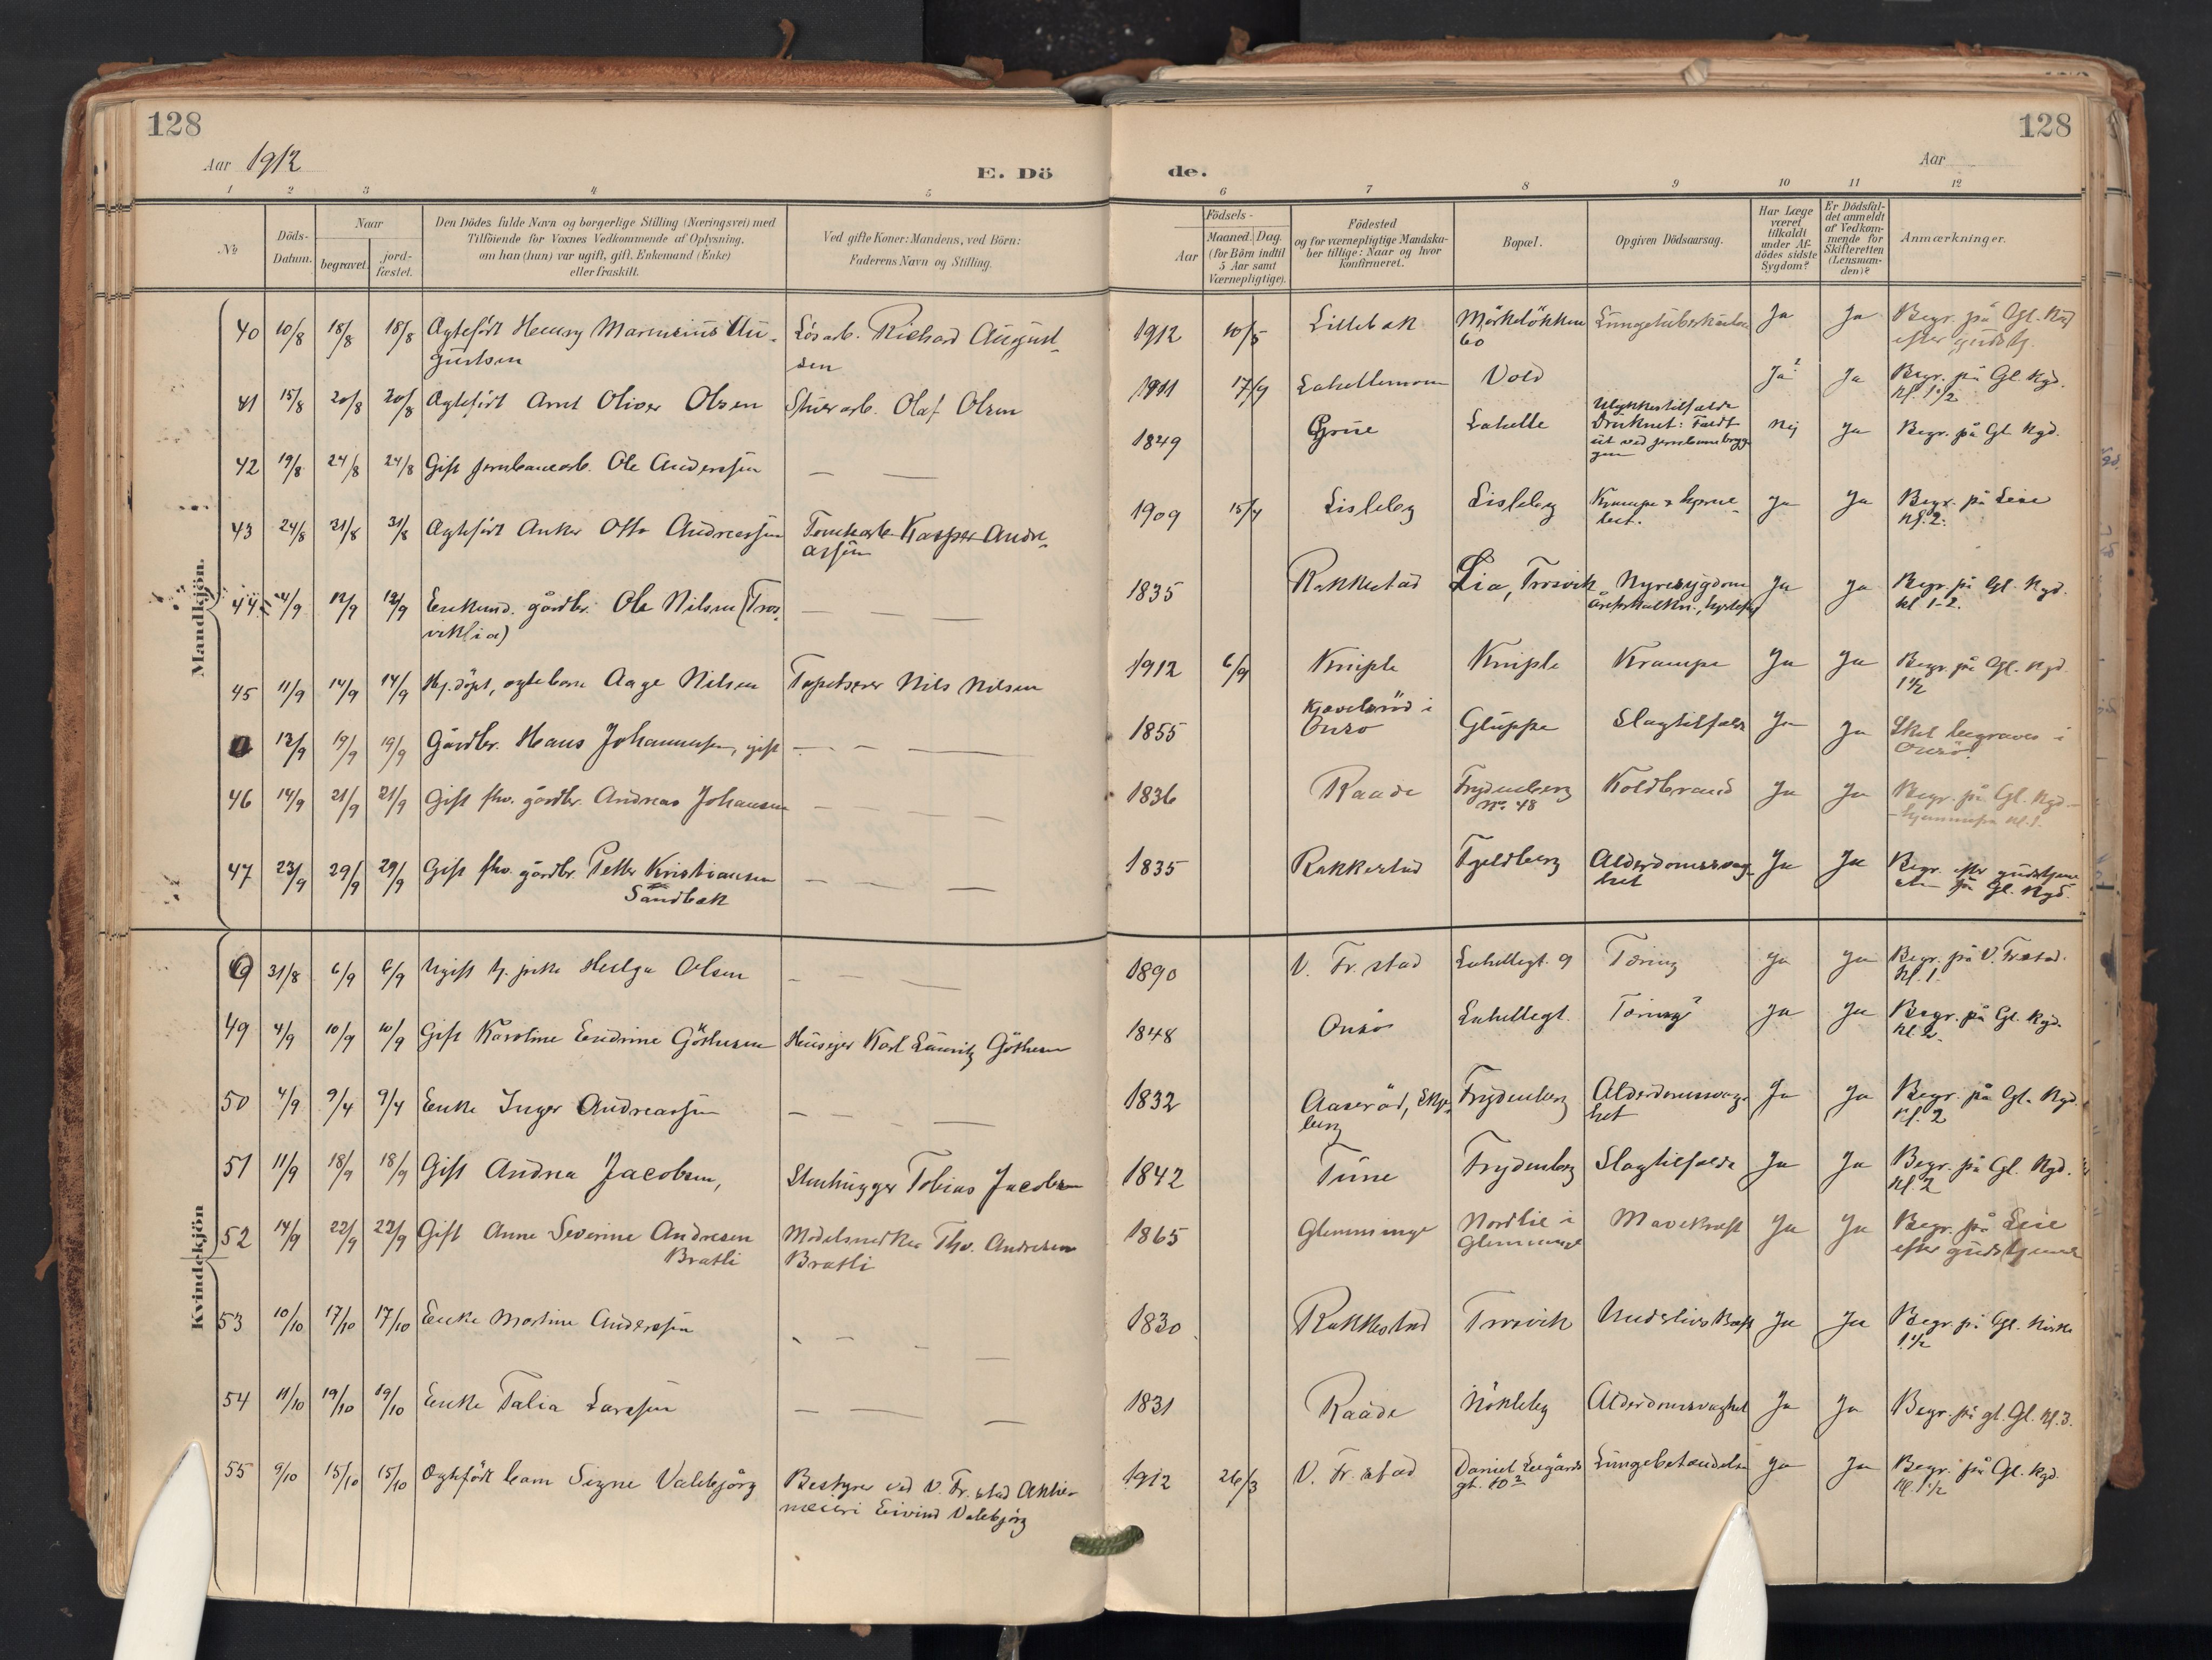 128
Aar 1912
E. Dö
1 2 3 4 5
No
Döds-
Datum.
Naar
begravet.
jord-
fæstet.
Den Dödes fulde Navn og borgerlige Stilling (Næringsvei) med
Tilföiende for Voxnes Vedkommende af Oplysning,
om han (hun) var ugift, gift, Enkemand (Enke)
eller fraskilt.
Ved gifte Koner: Mandens, ved Börn:
Faderens Navn og Stilling.
Mandkjön.
40 10/8 18/8 18/8 Ægtefödt Henry Marensius Au-
gustsen
Lösarb. Richard August-
sen
41 15/8 20/8 20/8 Ægtefödt Arnt Oliver Olsen
Stuerarb. Olaf Olsen
42 19/8 24/8 24/8 Gift jernbanearb. Ole Anderssen — —
43 24/8 31/8 31/8 Ægtefödt Anker Otto Andreassen
Tomtearb. Kasper Andre-
assen
44 4/9 12/9 12/9 Enkem. gårdbr. Ole Nilsen (Tros-
viklia) — —
45 11/9 14/9 14/9 Hj.döpt, ægtebarn Aage Nilsen
Tapetserer Nils Nilsen
12/9 19/9 19/9 Gårdbr. Hans Johannessen, gift — — —
46 14/9 21/9 21/9 Gift fhv. gårdbr. Andreas Johansen — — —
47 23/9 29/9 29/9 Gift fhv. gårdbr. Petter Kristiansen
Sandbæk — — —
Kvindekjön
31/8 6/9 6/9 Ugift tj. pike Helga Olsen — — —
49 4/9 10/9 10/9 Gift Karoline Endrine Göthesen
Huseier Karl Lauritz Göthesen
50 4/9 9/4 9/4 Enke Inger Andreassen — — —
51 11/9 18/9 18/9 Gift Andrea Jacobsen,
Stenhugger Tobias Jacobsen
52 14/9 22/9 22/9 Gift Anne Severine Andresen
Bratli
Modelsnedker Thv. Andresen
Bratli
53 10/10 17/10 17/10 Enke Martine Anderssen - - - —
54 11/10 19/10 19/10 Enke Talia Larssen — — —
55 9/10 15/10 15/10 Ægtefödt barn Signe Valebjörg
Bestyrer ved V. Fr.stad Aktie-
meieri Eivind Valebjörg
128
Aar
de.
6 7 8 9 10 11 12
Födsels-
Aar
Maaned. Dag.
(for Börn indtil
5 Aar samt
Værnepligtige).
Födested
og for værnepligtige Mandska-
ber tillige: Naar og hvor
konfirmeret.
Bopæl.
Opgiven Dödsaarsag.
Har Læge
været
tilkaldt
under Af-
dödes sidste
Sygdom?
Er Dödsfal-
det anmeldt
af Vedkom-
mende for
Skifteretten
(Lensman-
den)?
Anmærkninger.
1912 10/5 Lillebæk Mörkelökken
60
Lungetuberkulose Ja Ja Begr. på Gl. Kgd
efter gudstj.
1911 17/9 Lahellemoen Vold Ja? Ja Begr. på Gl. Kgd.
kl. 1 1/2
1849 Grue Lahelle Ulykkestilfælde
Druknet: Faldt
ut ved jernbanebryg-
gen
Nei Ja Begr. på Gl. Kgd.
1909 15/4 Lisleby Lisleby Krampe &
Ja Ja Begr. på Leie
kl. 2.
1835 Rakkestad Lia, Trosvik Nyresygdom
Ja Ja Begr. på Gl. Kgd.
kl 1-2.
1912 6/9 Kniple Kniple Krampe Ja Ja Begr. på Gl. Kgd.
1 1/2
1855 i
Onsö Gluppe Slagtilfælde Ja Ja Skal begraves i
Onsö.
1836 Raade Frydenberg
No. 48
Koldbrand Ja Ja Begr. på Gl. Kgd -
kl. 1.
1835 Rakkestad Fjeldberg Alderdomssvag-
het
Ja Ja Begr. efter gudstjene-
sten på Gl. Kgd.
1890 V. Fr.stad Lahellegt. 9 Tæring Ja Ja Begr. på V. Fr.stad.
kl. 1.
1848 Onsö Lahellegt. Tæring? Ja Ja Begr. på Gl. Kgd.
kl. 2.
1832 Aaseröd, Skje-
berg
Frydenberg Alderdomssvag-
het
Ja Ja Begr. på Gl. Kgd.
kl. 2
1842 Tune Frydenberg Slagtilfælde Ja Ja Begr. på Gl. Kgd.
kl. 2
1865 Glemminge Nordlie i
Glemminge
Mavekræft Ja Ja Begr. på Leie
efter gudstjeneste
1830 Rakkestad Trosvik Underlivskræft Ja Ja Begr. på Gl. Kirke
1 1/2
1831 Raade Nökleby Alderdomssvaghet Ja Ja Begr. på gl. Gl. kl. 3.
1912 26/3 V. Fr.stad Daniel Leegårds
gt. 10
Lungebetændelse Ja Ja Begr. på Gl. Kgd.
kl. 1 1/2